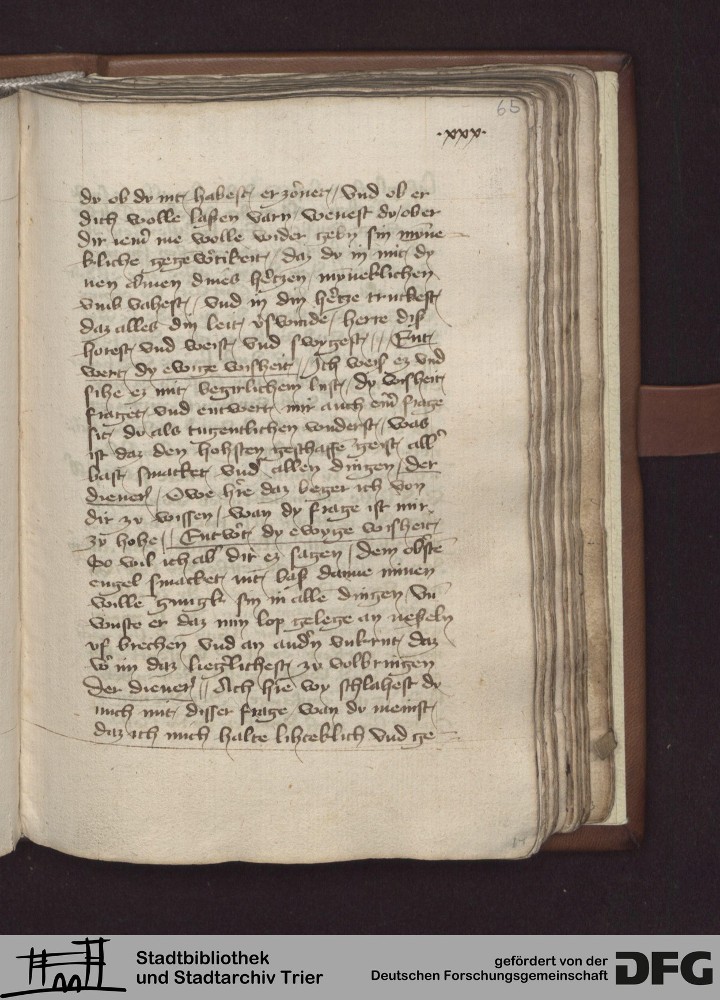 65
·xxx·
dv ob dv nit habest erzörnet / Vnd ob er
dich wolle lassen varn / wenest dv / ober
dir iem̄ me wolle wider gebn sin mȳne
kliche gegēwötikeit / daz dv in mit dy
nen armen dines hētzen mȳneklichen
vmb vahest / vnd in din hētze truckest
daz alles din leit v̄swinde / herre dis
horest vnd weist vnd swygest // Ent
wert dy ewige wisheit / Ich weis ez vnd
sihe ez mit begirlichem lust / dy wisheit
fraget vnd entwert mir auch ein̄ frage
sit dv als tugentlichen wnderst / was
ist daz den hohsten geschaffē geist all'
bast smacket vnd allen dingen / der
diener / Owe hr̄e daz beger ich von
dir zv wissen / wan dy frage ist mir
zv̄ hohe // Entw̄t dy ewyge wisheit
So wil ich ab' dir ez sagen / dem ob'ste
engel smacket nit bas danne minen
wille gnugk sin in alle dingen / Vn̄
wuste er daz min lop gelege an nesseln
vs brechen vnd an and'n vnkrut / daz
w' im daz lieg'lichest zv volbringen
Der diener // Ach hr̄e wy schlahest dv
mich mit disser frage wan dv meinst
daz ich mich halte lihteklich vnd ge
Stadtbibliothek
und Stadtarchiv Trier
gefördert von der
Deutschen Forschungsgemeinschaft
DFG